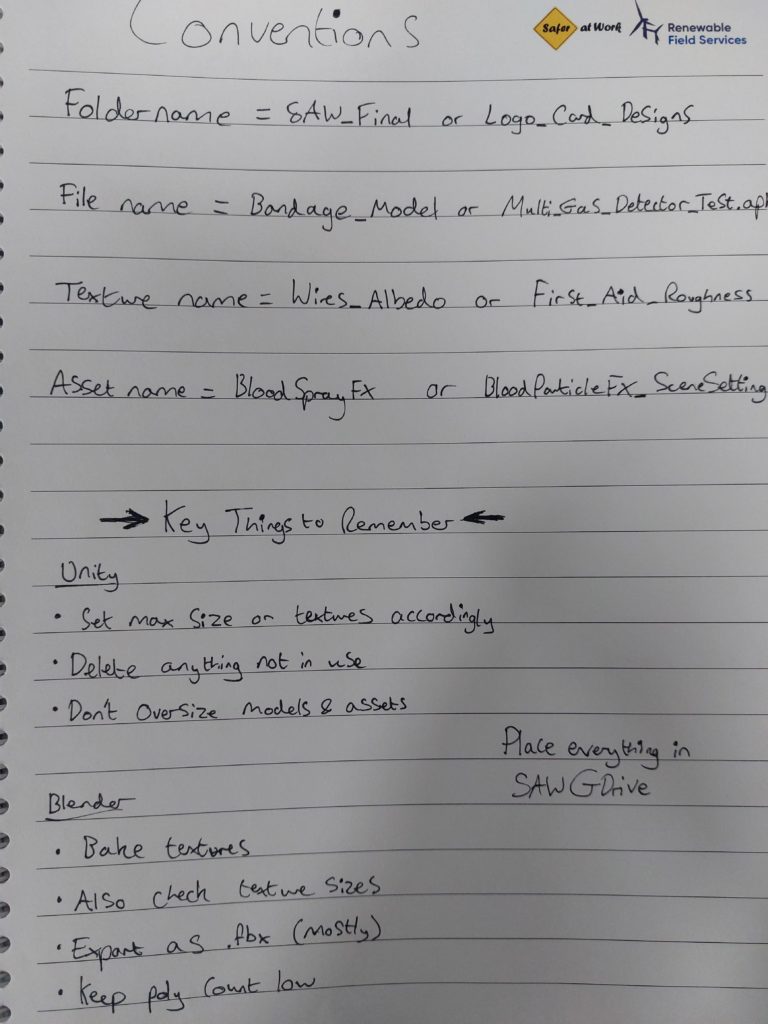 Conventions
Safer at Work Renewable
Field Services
Folder name = SAW_Final or Logo_Card_Designs
File name = Bandage_Model or Multi_Gas_Detector_Test.apk
Texture name = Wires_Albedo or First_Aid_Roughness
Asset name = BloodSprayFX or BloodParticleFX_SceneSetting
Key Things to Remember
Unity
• Set max size on textures accordingly
• Delete anything not in use
• Don't oversize models & assets
Place everything in
SAW GDrive
Blender
• Bake textures
• Also check texture sizes
• Export as .fbx (mostly)
• Keep poly count low